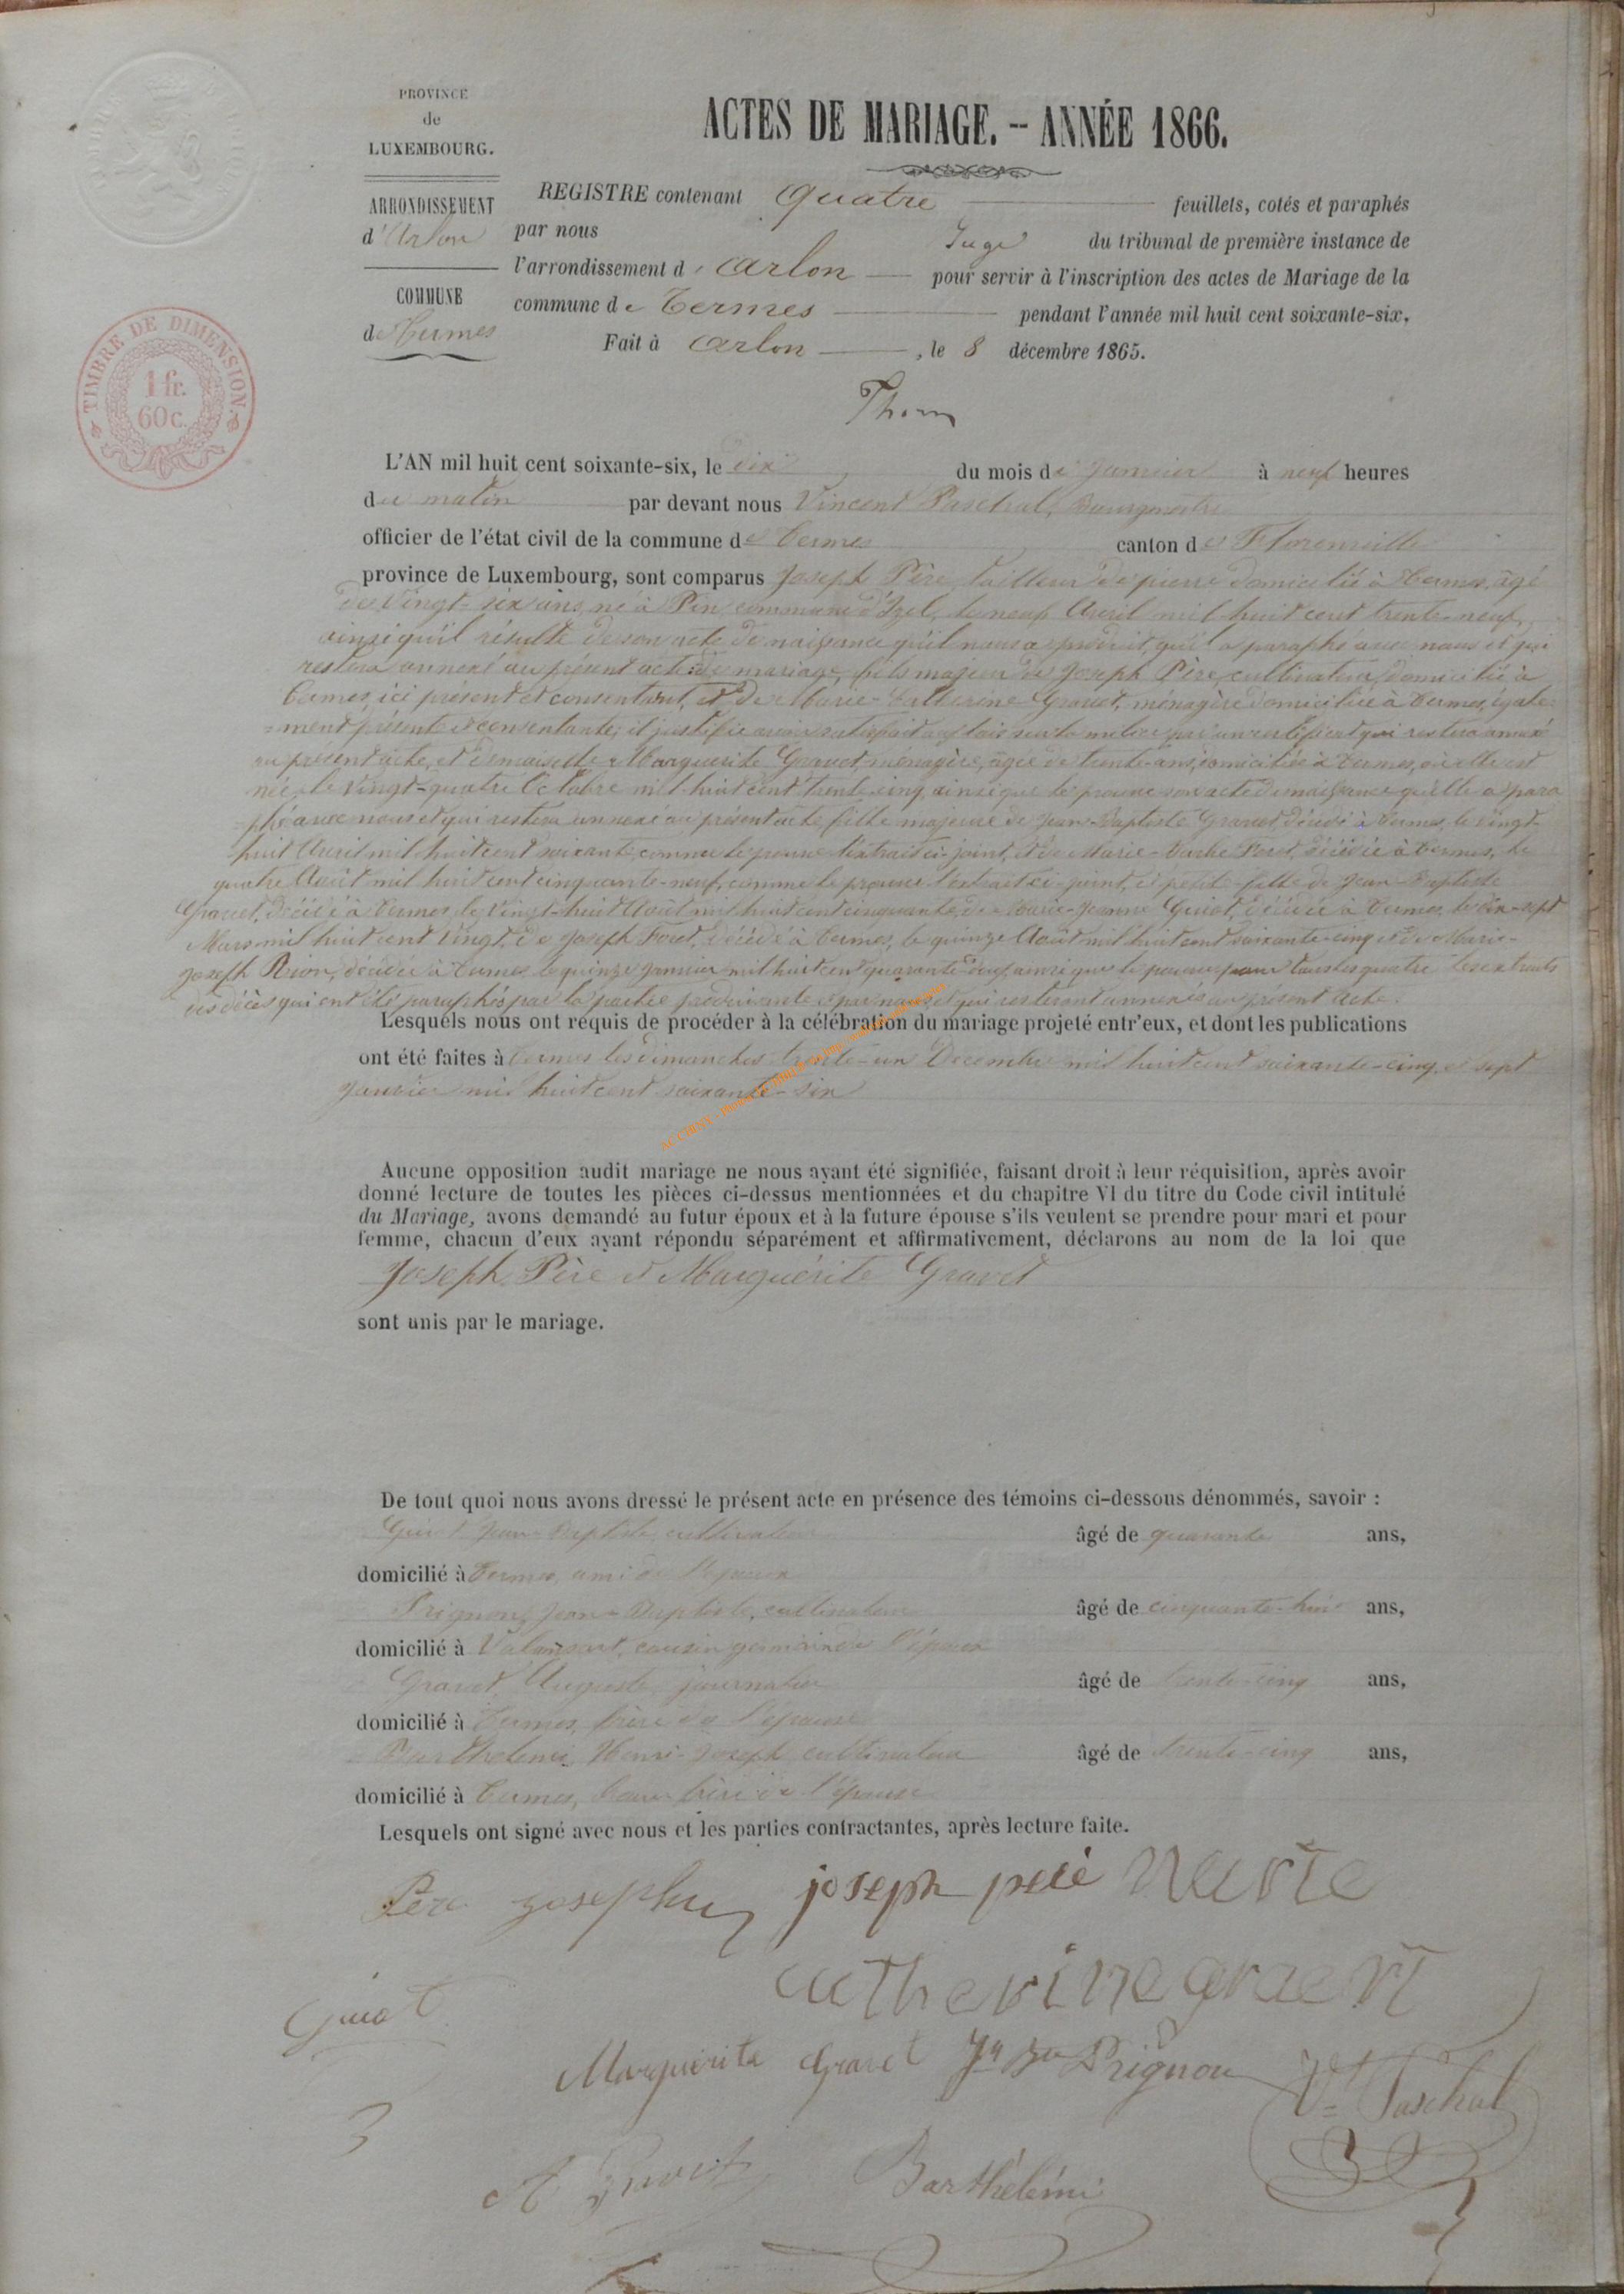 PROVINCE
de
LUXEMBOURG.
ARRONDISSEMENT
d'Arlon
COMMUNE
de Termes
TIMBRE DE DIMENSION.
1 fr.
60 c.
ACTES DE MARIAGE. – ANNÉE 1866.
REGISTRE contenant Quatre feuillets, cotés et paraphés
par nous Juge du tribunal de première instance de
l'arrondissement d'Arlon pour servir à l'inscription des actes de Mariage de la
commune de Termes pendant l'année mil huit cent soixante-six.
Fait à Arlon, le 8 décembre 1865.
L'AN mil huit cent soixante-six, le dix du mois de Janvier à neuf heures
du matin par devant nous Vincent Paschal, Bourgmestre
officier de l'état civil de la commune de Termes canton de Florenville
province de Luxembourg, sont comparus Joseph Père, tailleur de pierre domicilié à Termes, âgé
de vingt-six ans, né à Pin commune d'Izel, le neuf Avril mil huit cent trente-neuf,
ainsi qu'il résulte de son acte de naissance qu'il nous a produit, qu'il a paraphé avec nous et qui
restera annexé au présent acte de mariage, fils majeur de Joseph Père, cultivateur, domicilié à
Termes, ici présent et consentant, et de Marie-Catherine Gravet, ménagère domiciliée à Termes, égale-
=ment présente et consentante; il justifie avoir satisfait aux lois sur la milice par un certificat qui restera annexé
au présent acte, et demoiselle Marguerite Gravet, ménagère, âgée de trente ans, domiciliée à Termes, où elle est
née, le vingt-quatre Octobre mil huit cent trente-cinq, ainsi que le prouve son acte de naissance qu'elle a para
=phé avec nous et qui restera annexé au présent acte, fille majeure de Jean-Baptiste Gravet, décédé à Termes, le vingt-
huit Avril mil huit cent soixante, comme le prouve l'extrait ci-joint, et de Marie-Barbe Foret, décédée à Termes, le
quatre Août mil huit cent cinquante-neuf, comme le prouve l'extrait ci-joint, et petite-fille de Jean-Baptiste
Gravet, décédé à Termes, le vingt-huit Août mil huit cent cinquante, de Marie-Jeanne Guiot, décédée à Termes, le dix-sept
Mars mil huit cent vingt, de Joseph Foret, décédé à Termes, le quinze Août mil huit cent soixante-cinq et de Marie-
Joseph Rion, décédée à Termes le quinze Janvier mil huit cent quarante-deux, ainsi que le prouve pour tous les quatre les extraits
des décès qui ont été paraphés par la partie produisante et par nous, et qui resteront annexés au présent Acte.
Lesquels nous ont requis de procéder à la célébration du mariage projeté entr'eux, et dont les publications
ont été faites à Termes les dimanches trente-un Décembre mil huit cent soixante-cinq et sept
Janvier mil huit cent soixante-six
Aucune opposition audit mariage ne nous ayant été signifiée, faisant droit à leur réquisition, après avoir
donné lecture de toutes les pièces ci-dessus mentionnées et du chapitre VI du titre du Code civil intitulé
du Mariage, avons demandé au futur époux et à la future épouse s'ils veulent se prendre pour mari et pour
femme, chacun d'eux ayant répondu séparément et affirmativement, déclarons au nom de la loi que
Joseph Père et Marguérite Gravet
sont unis par le mariage.
De tout quoi nous avons dressé le présent acte en présence des témoins ci-dessous dénommés, savoir :
Guiot Jean-Baptiste, cultivateur âgé de quarante ans,
domicilié à Termes, ami de l'époux
Prignon, Jean-Baptiste, cultivateur âgé de cinquante-huit ans,
domicilié à Valansart, cousin germain de l'époux
Gravet Auguste, journalier âgé de trente-cinq ans,
domicilié à Termes, frère de l'épouse
Barthelemi Henri-Joseph cultivateur âgé de trente-cinq ans,
domicilié à Termes, beau-frère de l'épouse
Lesquels ont signé avec nous et les parties contractantes, après lecture faite.
Père Joseph joseph peré Marie
Catherine gravet
Guiot
Marguerite Gravet Jn Bte Prignon Vt Paschal
A Gravet Barthélémi